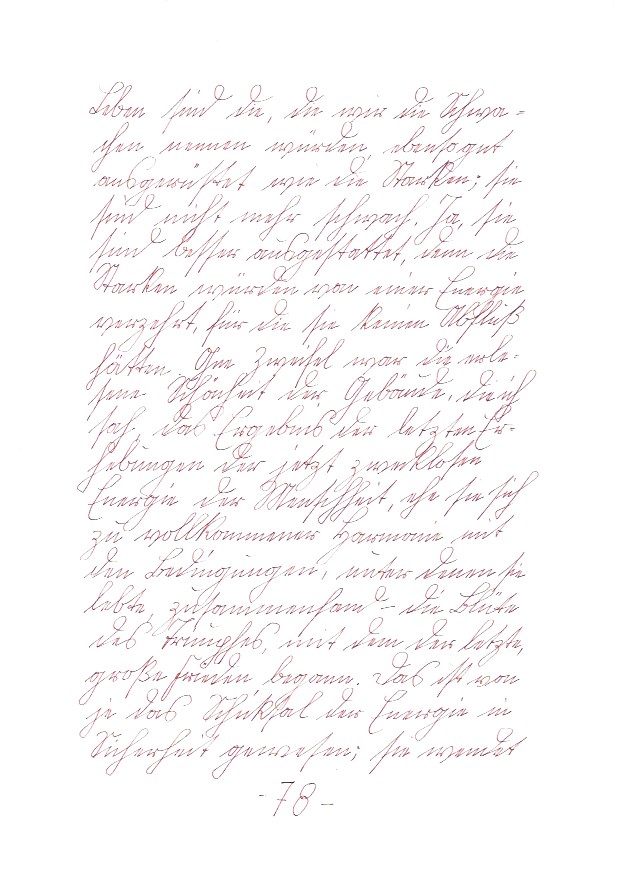 Leben sind die, die wir die Schwa-
chen nennen würden, ebensogut
ausgerüstet wie die Starken; sie
sind nicht mehr schwach. Ja, sie
sind besser ausgestattet, denn die
Starken würden von einer Energie
verzehrt, für die sie keinen Abfluß
hätten. Ohne Zweifel war die erle-
sene Schönheit der Gebäude, die ich
sah, das Ergebnis der letzten Er-
hebungen der jetzt zwecklosen
Energie der Menschheit, ehe sie sich
zu vollkommener Harmonie mit
den Bedingungen, unter denen sie
lebte, zusammenfand – die Blüte
des Triumphes, mit dem der letzte,
große Frieden begann. Das ist von
je das Schicksal der Energie in
Sicherheit gewesen; sie wendet
- 78 -